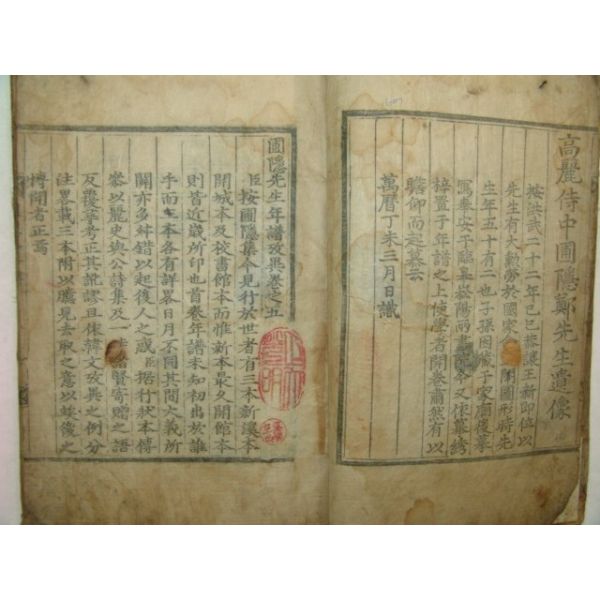 高麗侍中圃隱鄭先生遺像
按洪武二十二年己巳恭讓王新卽位以
先生有大勳勞於國家 圖形時先
生年五十有二也子孫因 于家廟後摹
寫奉安于臨皐崧陽兩書院今又依摹綉
梓置于年譜之上使學者開卷肅然有以
瞻仰而起慕云
萬曆丁未三月日識
圃隱先生年譜攷異卷之五
臣按圃隱集今見行於世者有三本新溪本
開城本及校書館本而惟新本最久開館本
則皆近歲所印也首卷年譜未知初出於誰
手而三本各有詳畧日月不同其間大義所
關亦多舛錯以起後人之惑臣據行狀本傳
叅以麗史與公詩集及一時諸賢寄贈之語
反覆參考正其訛謬且依韓文攷異之例分
注畧載三本附以臆見去取之意以俟後之
博聞者正焉